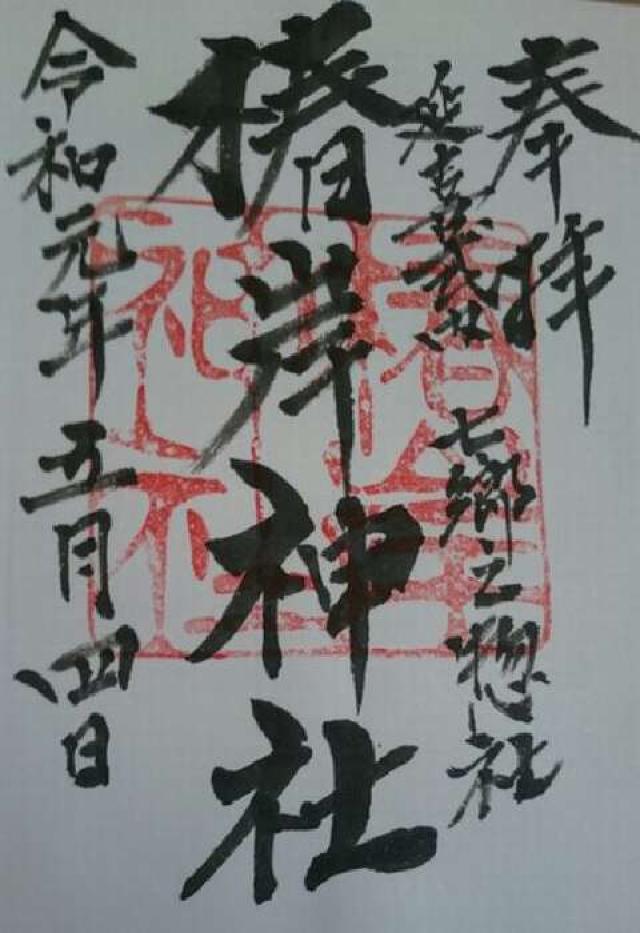 奉拝
延喜式内 七郷之惣社
椿岸神社
令和元年五月四日